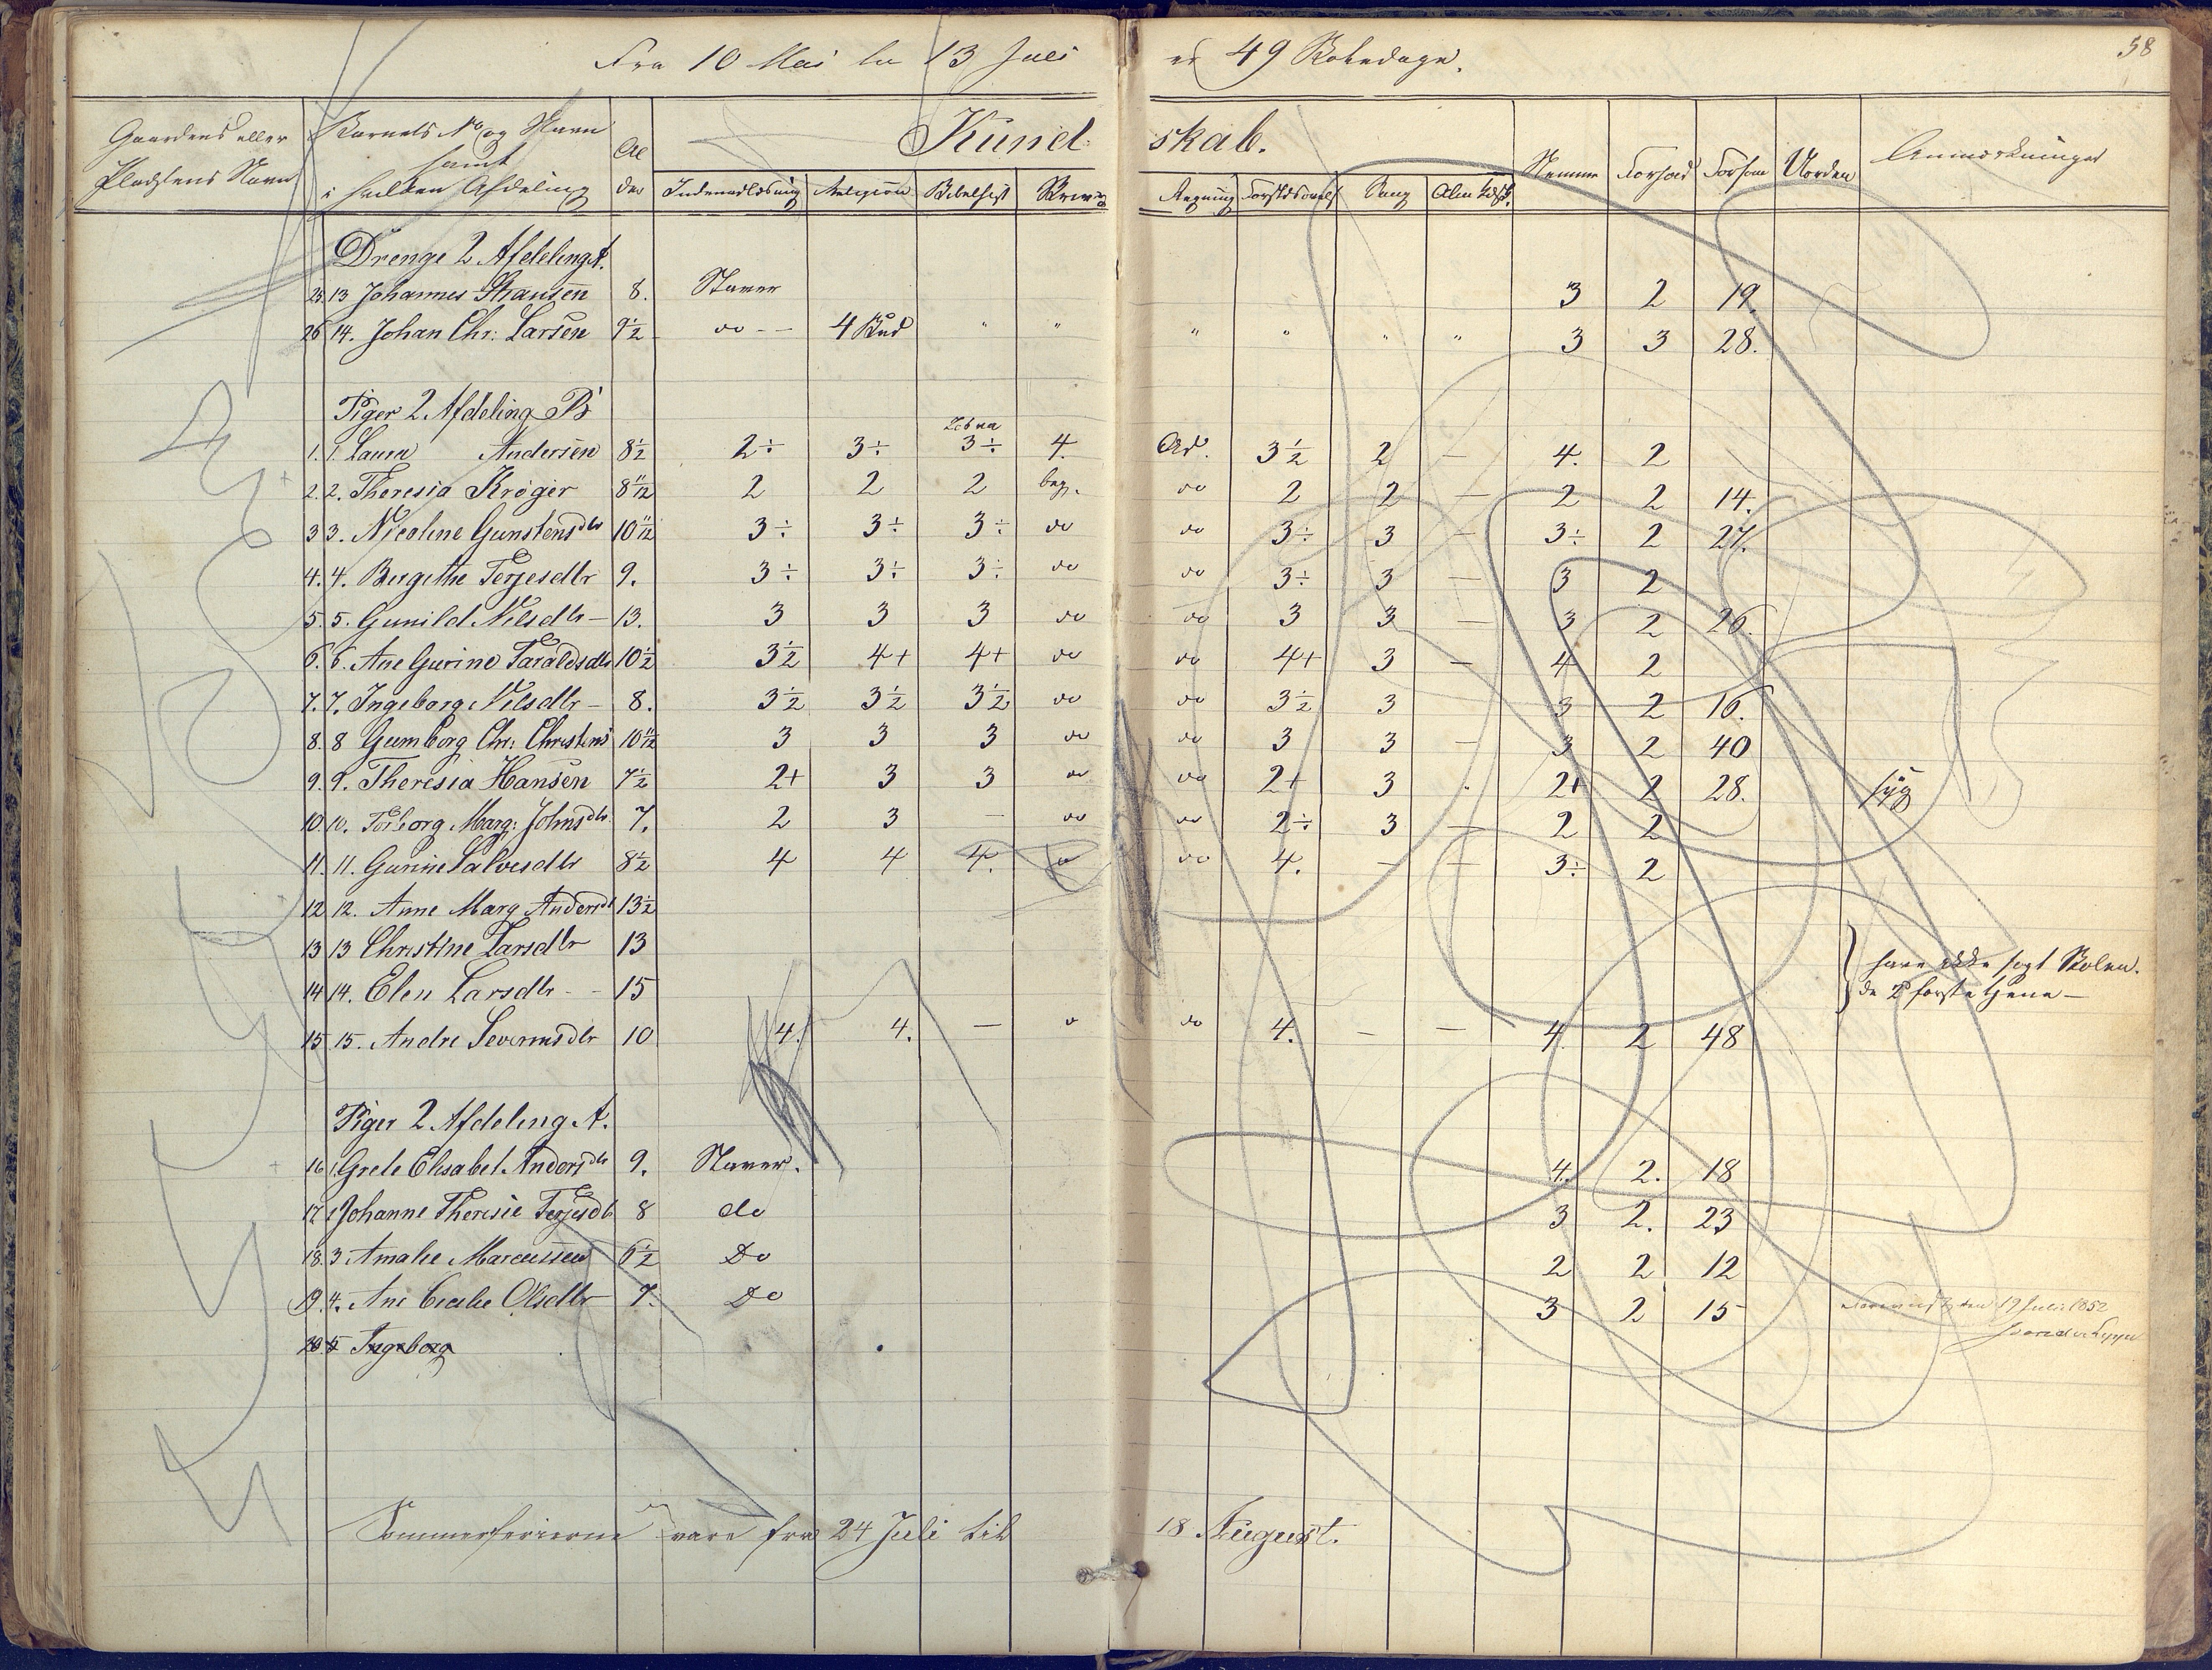 58
Fra 10 Mai til 13 Juli er 49 Skoledage.
Gaardens eller Pladsens Navn
Barnets No og Navn samt i hvilken Afdeling
Alder
Kundskab.
Indenadlæsning Religion Bibelhist Skrivning Regning Forstdsøvels Sang Alm Læsn. Nemme Forhold Forsøm Uorden Anmærkninger
Drenge 2 Afdeling A.
25. 13 Johannes Hansen 8. Staver 3 2 19.
26 14. Johan Chr: Larsen 9½ do -- 4 Bud " " " " " " 3 3 28.
Piger 2 Afdeling B
1. 1. Laura Andersen 8½ 2÷ 3÷ 3÷ 4. Ad. 3½ 2 — 4. 2
2. 2. Theresia Krøger 8 11/12 2 2 2 beg. do 2 2 — 2 2 14.
3 3. Nicoline Gunstensdtr 10 11/12 3÷ 3÷ 3÷ do do 3÷ 3 — 3÷ 2 27.
4. 4. Bergithe Terjesdtr 9. 3÷ 3÷ 3÷ do do 3÷ 3 — 3 2
5. 5. Gunild Nilsdtr — 13. 3 3 3 do do 3 3 — 3 2 26.
6. 6. Ane Gurine Taraldsdtr 10½ 3½ 4+ 4+ do do 4+ 3 — 4 2
7. 7. Ingeborg Nilsdtr — 8. 3½ 3½ 3½ do do 3½ 3 3 2 16.
8. 8 Gumborg Chr: Christens 10 11/12 3 3 3 do do 3 3 — 3 2 40
9. 9. Theresia Hansen 7½ 2+ 3 3 do do 2+ 3 . 2+ 2 28. syg
10. 10. Torborg Marg: Johnsdtr 7. 2 3 — do do 2÷ 3 — 2 2
11. 11. Gurine Salvesdtr 8½ 4 4 4. do do 4. — — 3÷ 2
12 12. Anne Marg Andersdt 13½
13 13 Christine Larsdtr 13
have ikke søgt Skolen.
14 14. Elen Larsdtr - - 15
de 2 første tjene —
15 15. Andre Severinsdtr 10 4. 4. — do do 4. — — 4. 2 48
Piger 2 Afdeling A.
16 1. Grete Elisabet Andersdtr 9. Staver. 4. 2. 18
17 2 Johanne Theresie Terjesdt 8 do 3 2. 23
18. 3 Amalie Marcussen 6½ Do 2 2 12
19. 4. Ane Cecilie Olsdtr 7. Do 3 2 15
den 19 Juli 1852
20. 5 Ingeborg
Sommerferierne vare fra 24 Juli til 18 August.